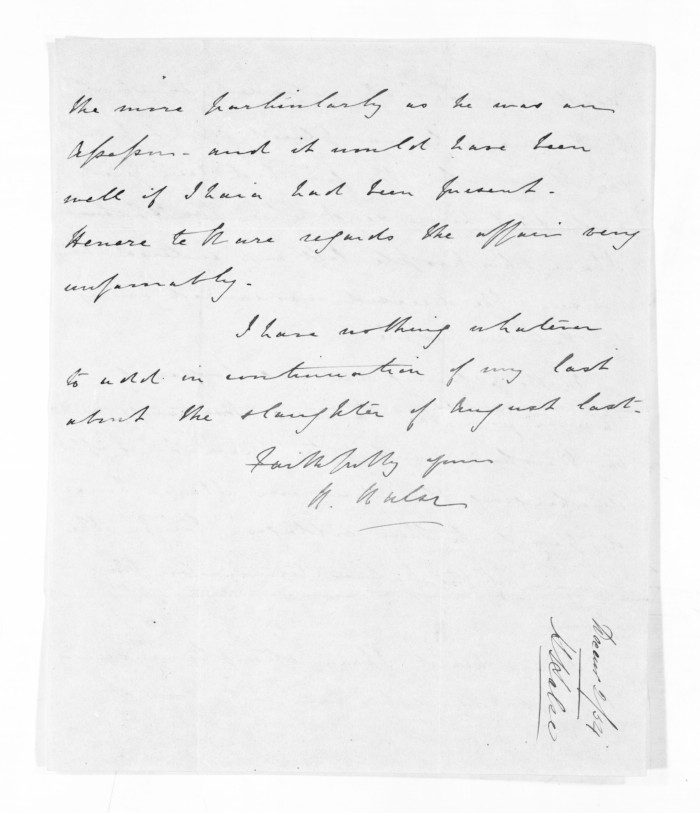 the more particularly as he was an
Assessor - and it would have been
well if Ihaia had been present.
Henere te Kare regards the affair very
unfavorably.
I have nothing whatever
to add in continuation of my last
about the slaughter of August last -
Faithfully yours
H. Halse
H Halse